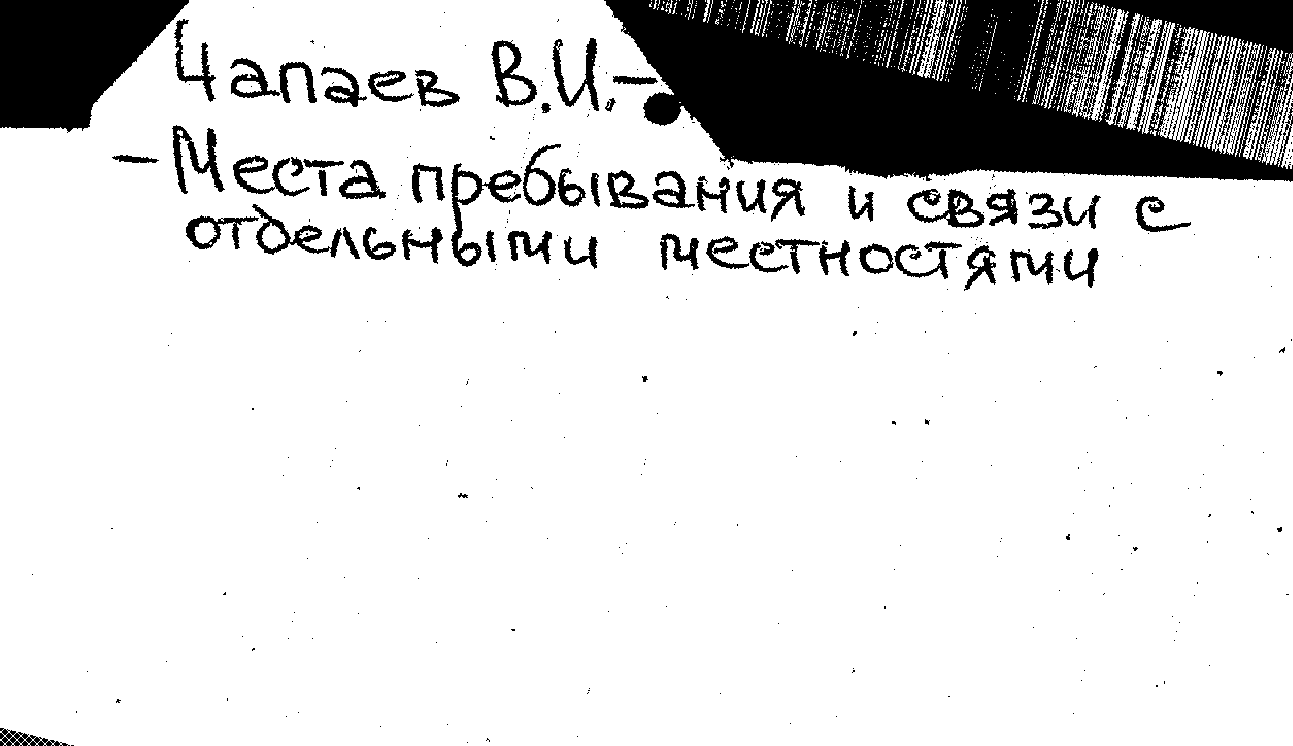 Чапаев В.И.-
- Места пребывания и связи с
отдельными местностями